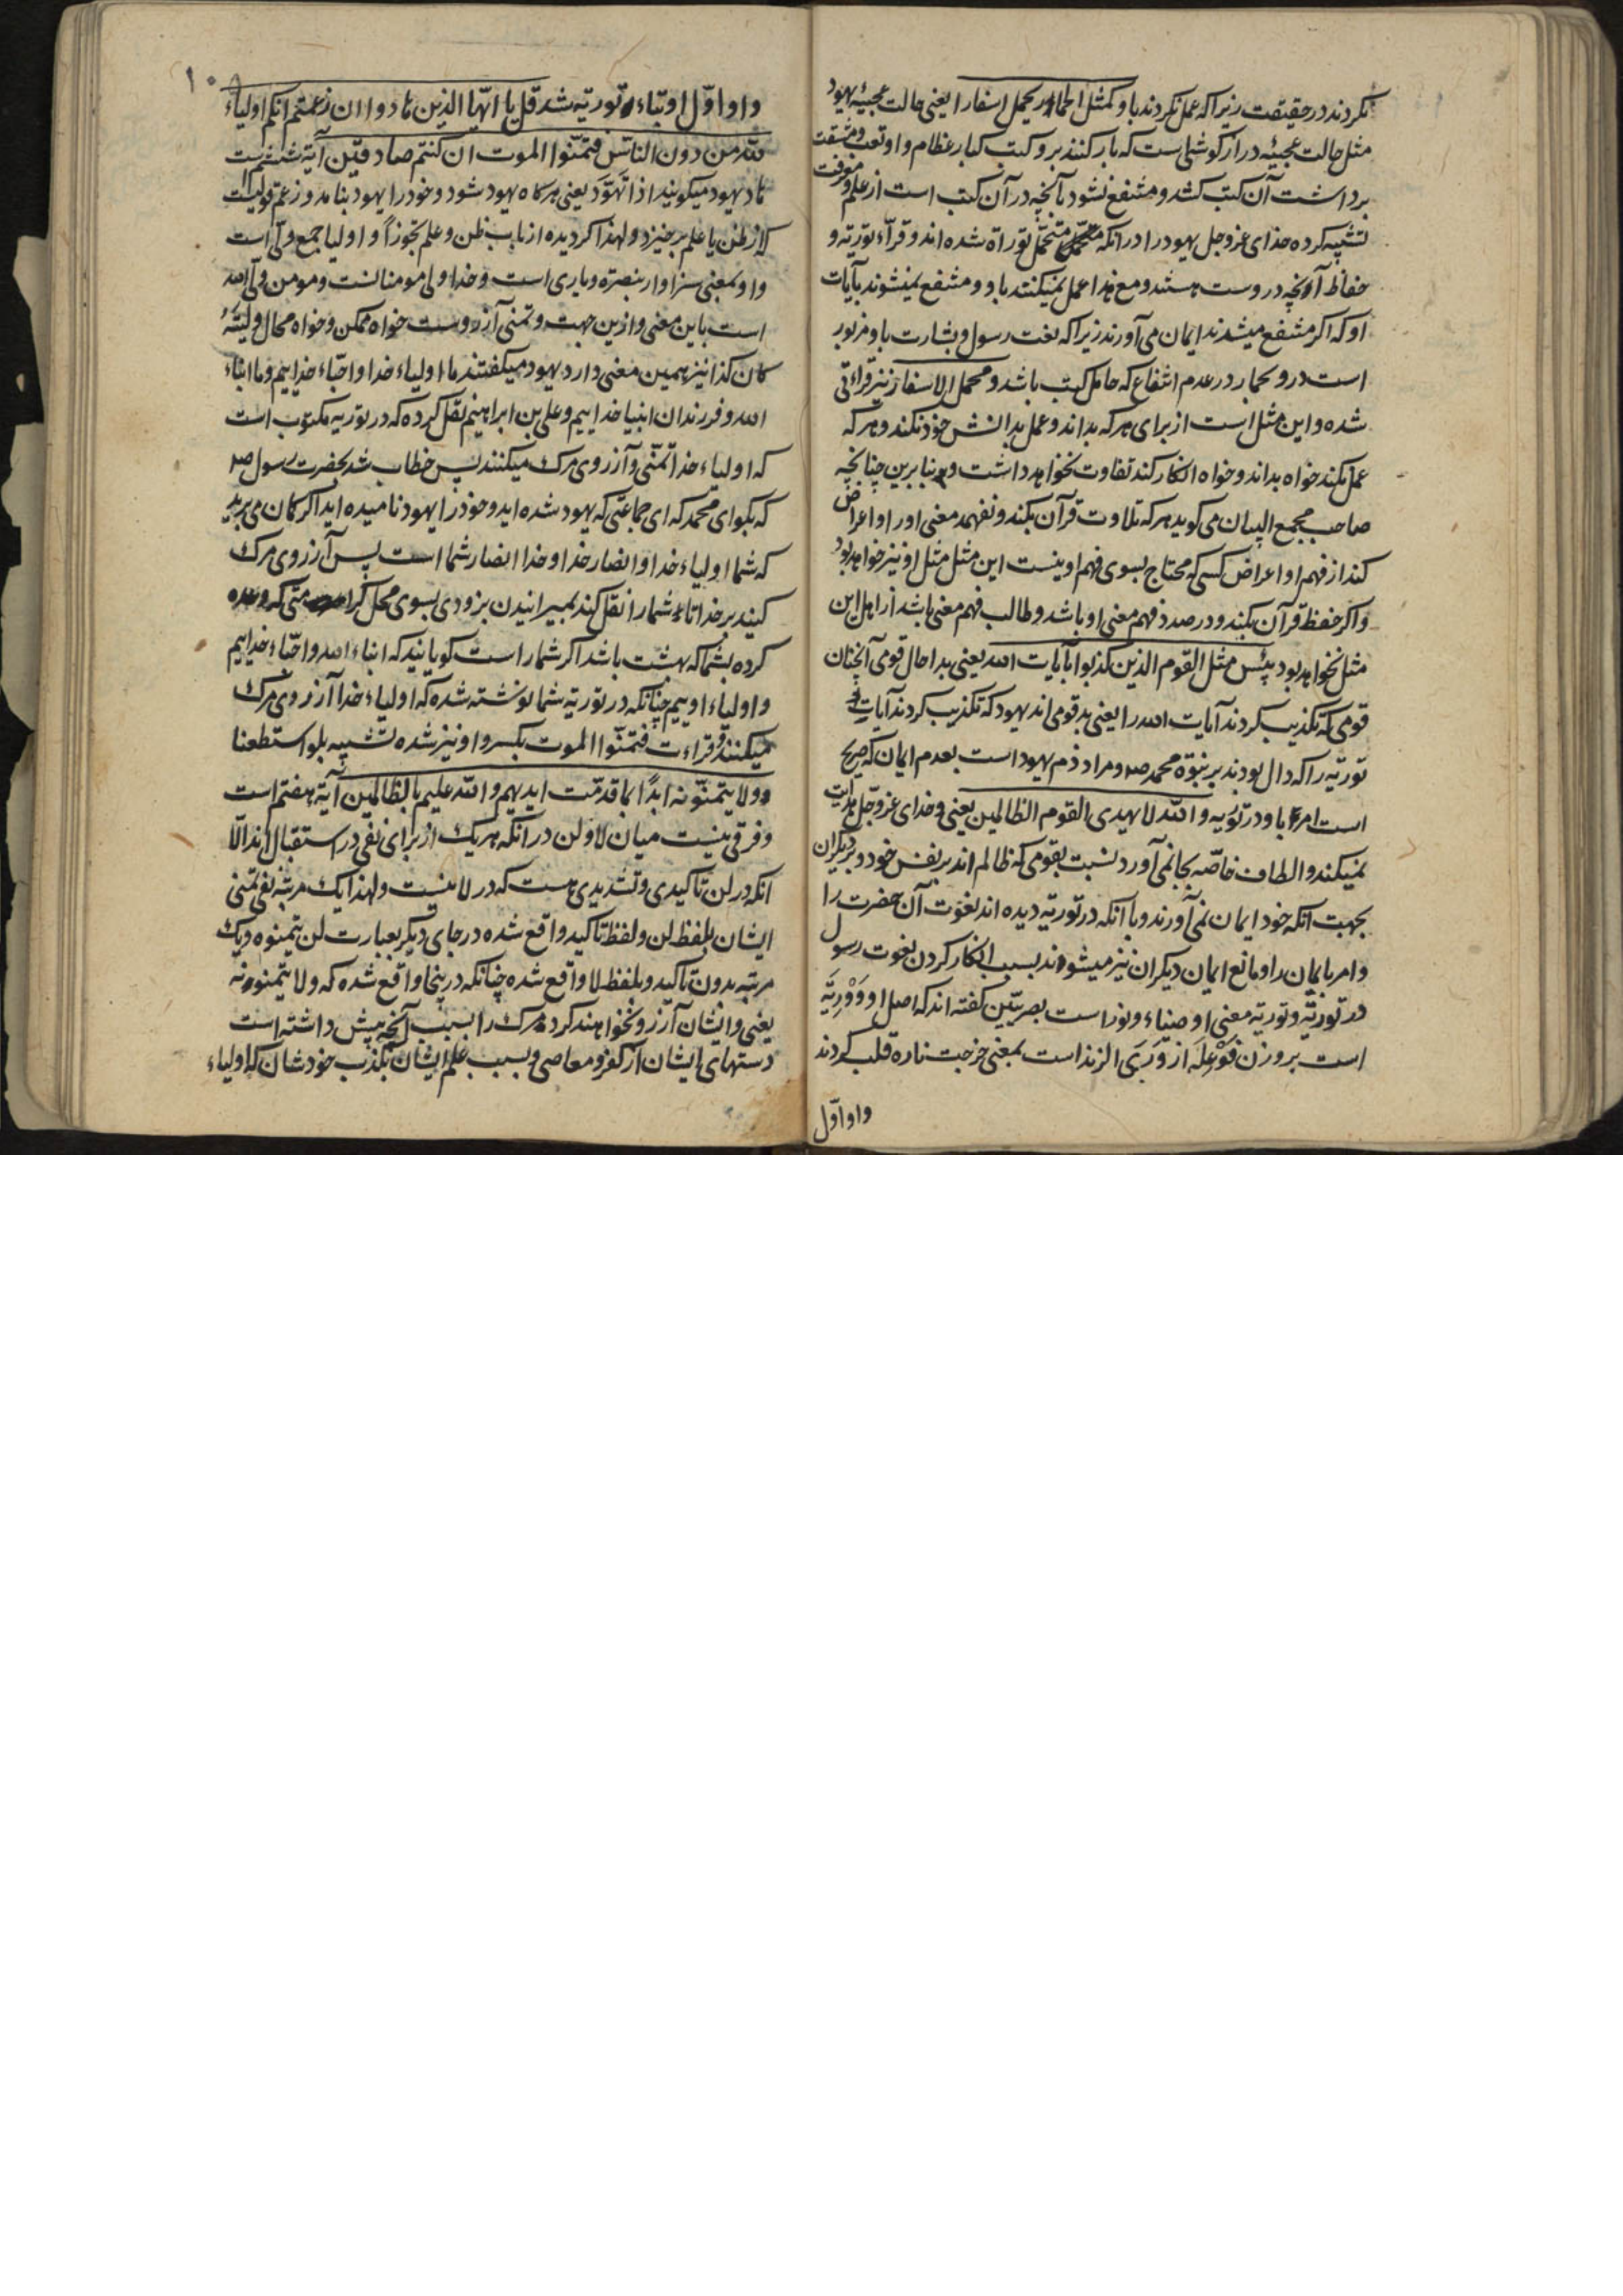 نکردند در حقیقت زیرا که عمل نکردند باو کمثل الحمار یحمل اسفارا یعنی حالت عجیبهٔ یهود
مثل حالت عجیبهٔ دراز کوشی است که بار کنند برو کتب کبار عظام و او تعب و مشقت
برداشت آن کتب کشد و منتفع نشود بآنچه در آن کتب است از علم و معرفت
تشبیه کرده خدای عز و جل یهود را در آنکه متحمل توراة شده اند و قرّاء توریة و
حفاظ آنچه دروست هستند و مع هذا عمل نمیکنند باو و منتفع نمیشوند بآیات
او که اکر منتفع میشدند ایمان می آوردند زیرا که نعت رسول و بشارت باو مزبور
است درو بحمار در عدم انتفاع که حامل کتب باشد و محمل الاسفار نیز قراءتی
شده و این مثل است از برای هر که بداند و عمل بدانش خود نکند و هر که
عمل نکند خواه بداند و خواه انکار کند تفاوت نخواهد داشت و بنابرین چنانچه
صاحب مجمع البیان می کوید هر که تلاوت قرآن بکند و نفهمد معنی او را و اعراض
کند از فهم او اعراض کسی که محتاج بسوی فهم او نیست این مثل مثل او نیز خواهد بود
و اکر حفظ قرآن بکند و در صدد فهم معنی او باشد و طالب فهم معنی باشد از اهل این
مثل نخواهد بود بئس مثل القوم الذین کذبوا بآیات الله یعنی بدا حال قومی آنچنان
قومی که تکذیب کردند آیات الله را یعنی بد قومی اند یهود که تکذیب کردند آیات
توریة را که دال بودند بر نبوة محمد ص و مراد ذم یهود است بعدم ایمان که صریح
است امر باو در توریه و الله لا یهدی القوم الظالمین یعنی و خدای عز و جل هدایت
نمیکند و الطاف خاصّه بجا نمی آورد نسبت بقومی که ظالم اند بر نفس خود و بر دیکران
بجهت آنکه خود ایمان نمی آورند و با آنکه در توریة دیده اند نعوت آن حضرت را
و امر بایمان را و مانع ایمان دیکران نیز میشوند بسبب انکار کردن نعوت رسول
در توریة و توریة معنی او ضیاء و نور است بصریّین کفته اند که اصل او وَوْرِیَة
است بر وزن فَوْعِلَه از وَرَیَ الزند است بمعنی خرجت ناره قلب کردند
واو اوّل
۱۰۸
واو اوّل او بتاء توریة شد قل یا ایّها الذین هادوا ان زعمتم انکم اولیاء
للّه من دون الناس فتمنّوا الموت ان کنتم صادقین آیة ششم است
هاد یهود میکویند اذا تَهَوَّدَ یعنی هر کاه یهود شود و خود را یهود بنامد و زعم قولیست
که از ظن یا علم برخیزد و لهذا کردیده از باب ظن و علم تجوزاً و اولیا جمع ولیّ است
و او بمعنی سزاوار بنصرة و یاری است و خدا ولی مومنانست و مومن ولیّ الله
است باین معنی و ازین جهت و تمنی آرزوست خواه ممکن و خواه محال و لیته
کان کذا نیز همین معنی دارد یهود میکفتند ما اولیاء خدا و احبّاء خداییم و ما ابناء
الله و فرزندان انبیا خداییم و علی بن ابراهیم نقل کرده که در توریه مکتوب است
که اولیاء خدا تمنّی و آرزوی مرک میکنند پس خطاب شد بحضرت رسول ص
که بکو ای محمد که ای جماعتی که یهود شده اید و خود را یهود نامیده اید اکر کمان می برید
که شما اولیاء خدا و انصار خدا و خدا انصار شما است پس آرزوی مرک
کنید بر خدا تا شما را نقل کند بمیرانیدن بزودی بسوی محل کرامتی که وعده
کرده بشما که بهشت باشد اکر شما راست کویانید که ابناء الله و احبّاء خداییم
و اولیاء اوییم چنانکه در توریة شما نوشته شده که اولیاء خدا آرزوی مرک
میکنند و قراءت فتمنّوا الموت بکسر واو نیز شده تشبیه بلو استطعنا
و لا یتمنّونه ابداً بما قدمّت ایدیهم و الله علیم بالظالمین آیة هفتم است
و فرقی نیست میان لا و لن در آنکه هر یک از برای نفی در استقبال اند الّا
انکه در لن تاکیدی و تشدیدی هست که در لا نیست و لهذا یک مرتبه نفی تمنی
ایشان بلفظ لن و لفظ تاکید واقع شده در جای دیکر بعبارت لن یتمنوه و یک
مرتبه بدون تاکید و بلفظ لا واقع شده چنانکه درینجا واقع شده که و لا یتمنونه
یعنی و ایشان آرزو نخواهند کرد مرک را بسبب آنچه پیش داشته است
دستهای ایشان از کفر و معاصی و بسبب علم ایشان بکذب خودشان که اولیاء